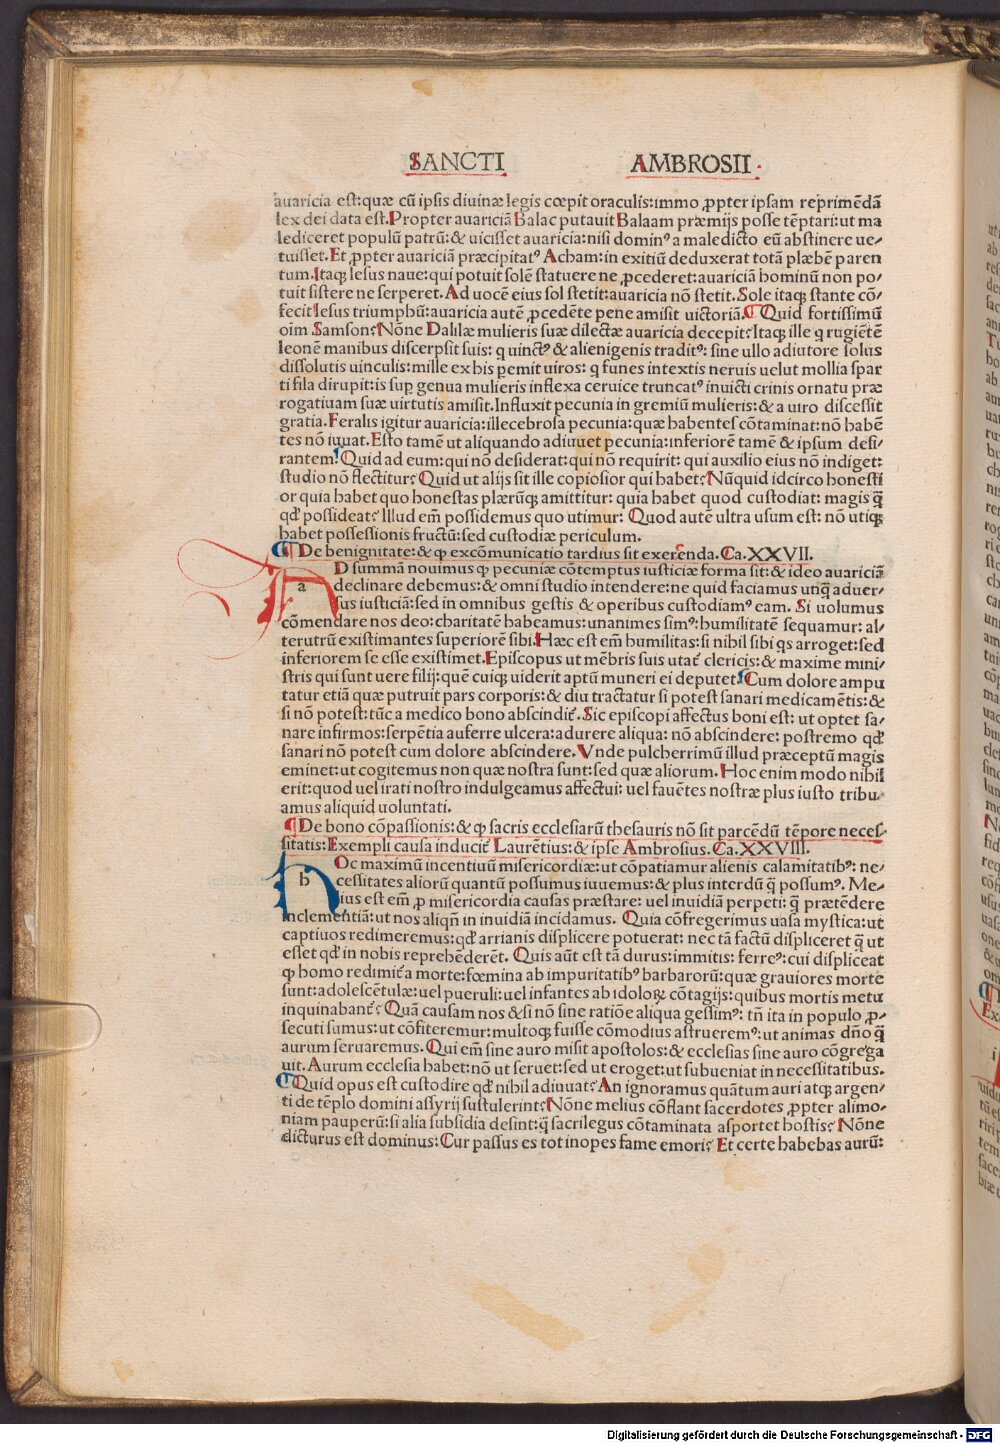 SANCTI AMBROSII
auaricia est:quæ cū ipsis diuinæ legis cœpit oraculis:immo ꝓpter ipsam reprimēdā
lex dei data est.Propter auariciā Balac putauit Balaam præmijs posse tēptari:ut ma
lediceret populū patrū:& uicisset auaricia:nisi dominꝰ a maledicto eū abstinere ue-
tuisset.Et ꝓpter auariciā præcipitatꝰ Acham:in exitiū deduxerat totā plæbē paren
tum.Itaqꝫ Iesus naue:qui potuit solē statuere ne ꝓcederet:auariciā hominū non po-
tuit sistere ne serperet.Ad uocē eius sol stetit:auaricia nō stetit.Sole itaqꝫ stante cō-
fecit Iesus triumphū:auaricia autē ꝓcedēte pene amisit uictoriā.¶Quid fortissimū
oīm Samson?Nōne Dalilæ mulieris suæ dilectæ auaricia decepit?Itaqꝫ ille q rugiētē
leonē manibus discerpsit suis: q uinctꝰ & alienigenis traditꝰ: sine ullo adiutore solus
dissolutis uinculis:mille ex his pemit uiros: q funes intextis neruis uelut mollia spar
ti fila dirupit:is suꝑ genua mulieris inflexa ceruice truncatꝰ inuicti crinis ornatu præ
rogatiuam suæ uirtutis amisit.Influxit pecunia in gremiū mulieris:& a uiro discessit
gratia.Feralis igitur auaricia:illecebrosa pecunia:quæ habentes cōtaminat:nō habē
tes nō iuuat.Esto tamē ut aliquando adiuuet pecunia:inferiorē tamē & ipsum desi-
rantem?Quid ad eum:qui nō desiderat:qui nō requirit: qui auxilio eius nō indiget:
studio nō flectitur?Quid ut alijs sit ille copiosior qui habet?Nūquid idcirco honesti
or quia habet quo honestas plærūqꝫ amittitur: quia habet quod custodiat: magis q̄
qđ possideat?Illud em̄ possidemus quo utimur: Quod autē ultra usum est: nō utiqꝫ
habet possessionis fructū:sed custodiæ periculum.
¶De benignitate:& ꝙ excōmunicatio tardius sit exerenda. Ca.XXVII.
a D summā nouimus ꝙ pecuniæ cōtemptus iusticiæ forma sit:& ideo auariciā
declinare debemus:& omni studio intendere:ne quid faciamus unq̄ aduer-
sus iusticiā:sed in omnibus gestis & operibus custodiamꝰ eam. Si uolumus
cōmendare nos deo:charitatē habeamus:unanimes simꝰ:humilitatē sequamur: al-
terutrū existimantes superiorē sibi.Hæc est em̄ humilitas:si nihil sibi qs arroget:sed
inferiorem se esse existimet.Episcopus ut mēbris suis utat̄ clericis:& maxime mini-
stris qui sunt uere filij:quē cuiqꝫ uiderit aptū muneri ei deputet?Cum dolore ampu
tatur etiā quæ putruit pars corporis:& diu tractatur si potest sanari medicamētis:&
si nō potest:tūc a medico bono abscindit̄.Sic episcopi affectus boni est: ut optet sa-
nare infirmos:serpētia auferre ulcera:adurere aliqua: nō abscindere: postremo qđ
sanari nō potest cum dolore abscindere.Vnde pulcherrimū illud præceptū magis
eminet:ut cogitemus non quæ nostra sunt:sed quæ aliorum.Hoc enim modo nihil
erit:quod uel irati nostro indulgeamus affectui: uel fauētes nostræ plus iusto tribu-
amus aliquid uoluntati.
¶De bono cōpassionis:& ꝙ sacris ecclesiarū thesauris nō sit parcēdū tēpore neces-
sitatis:Exempli causa inducit̄ Laurētius:& ipse Ambrosius.Ca.XXVIII.
h Oc maximū incentiuū misericordiæ:ut cōpatiamur alienis calamitatibꝰ: ne-
cessitates aliorū quantū possumus iuuemus:& plus interdū q̄ possumꝰ. Me-
ius est em̄ ꝓ misericordia causas præstare: uel inuidiā perpeti: q̄ prætēdere
inclementiā:ut nos aliqn̄ in inuidiā incidamus. Quia cōfregerimus uasa mystica:ut
captiuos redimeremus:qđ arrianis displicere potuerat: nec tā factū displiceret q̄ ut
esset qđ in nobis reprehēderēt. Quis aūt est tā durus:immitis: ferreꝰ:cui displiceat
ꝙ homo redimit̄ a morte:fœmina ab impuritatibꝰ barbarorū:quæ grauiores morte
sunt:adolescētulæ:uel pueruli:uel infantes ab idoloꝝ cōtagijs:quibus mortis metu
inquinabant̄?Quā causam nos &si nō sine ratiōe aliqua gessimꝰ: tn̄ ita in populo ꝓ-
secuti sumus:ut cōfiteremur:multoqꝫ fuisse cōmodius astrueremꝰ:ut animas dn̄o q̄
aurum seruaremus.Qui em̄ sine auro misit apostolos:& ecclesias sine auro cōgrega
uit.Aurum ecclesia habet:nō ut seruet:sed ut eroget:ut subueniat in necessitatibus.
¶Quid opus est custodire qđ nihil adiuuat?An ignoramus quātum auri atqꝫ argen-
ti de tēplo domini assyrij sustulerint?Nōne melius cōflant sacerdotes ꝓpter alimo-
niam pauperū:si alia subsidia desint:q̄ sacrilegus cōtaminata asportet hostis?Nōne
dicturus est dominus:Cur passus es tot inopes fame emori? Et certe habebas aurū:
Digitalisierung gefördert durch die Deutsche Forschungsgemeinschaft - DFG